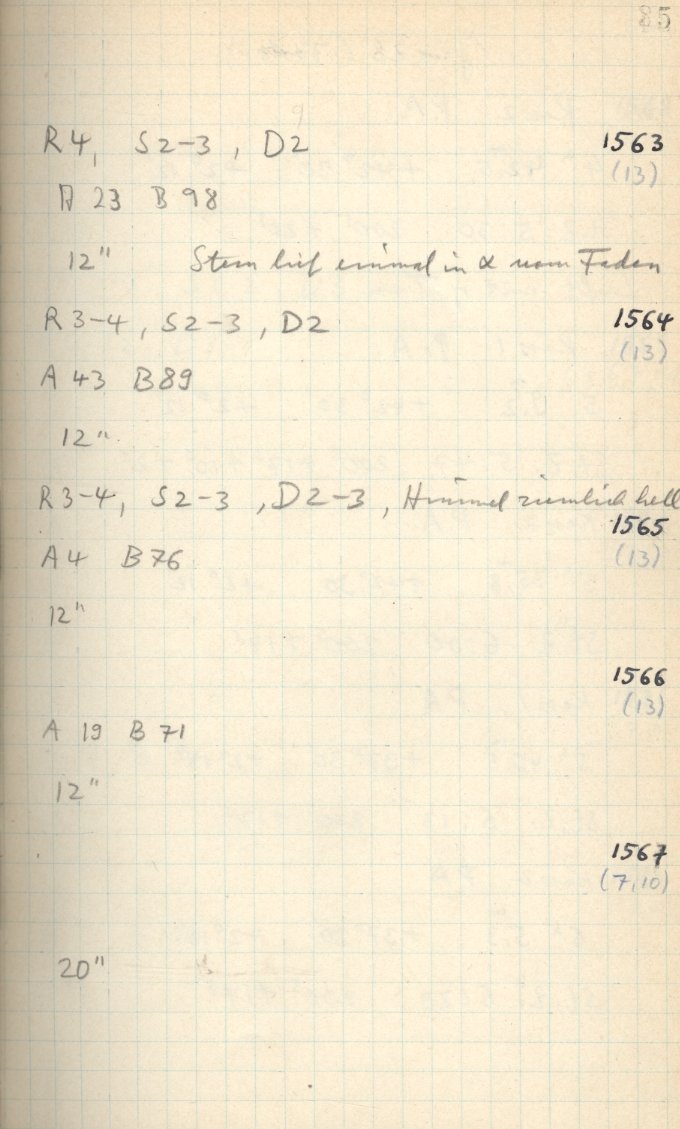 35
R 4, S 2-3, D 2 1563
(13)
A 23 B 98
12" Stern lief einmal in α vom Faden
R 3-4, S 2-3, D 2 1564
(13)
A 43 B 89
12"
R 3-4, S 2-3, D 2-3, Himmel ziemlich hell
1565
A 4 B 76 (13)
12"
1566
(13)
A 19 B 71
12"
1567
(7,10)
20"